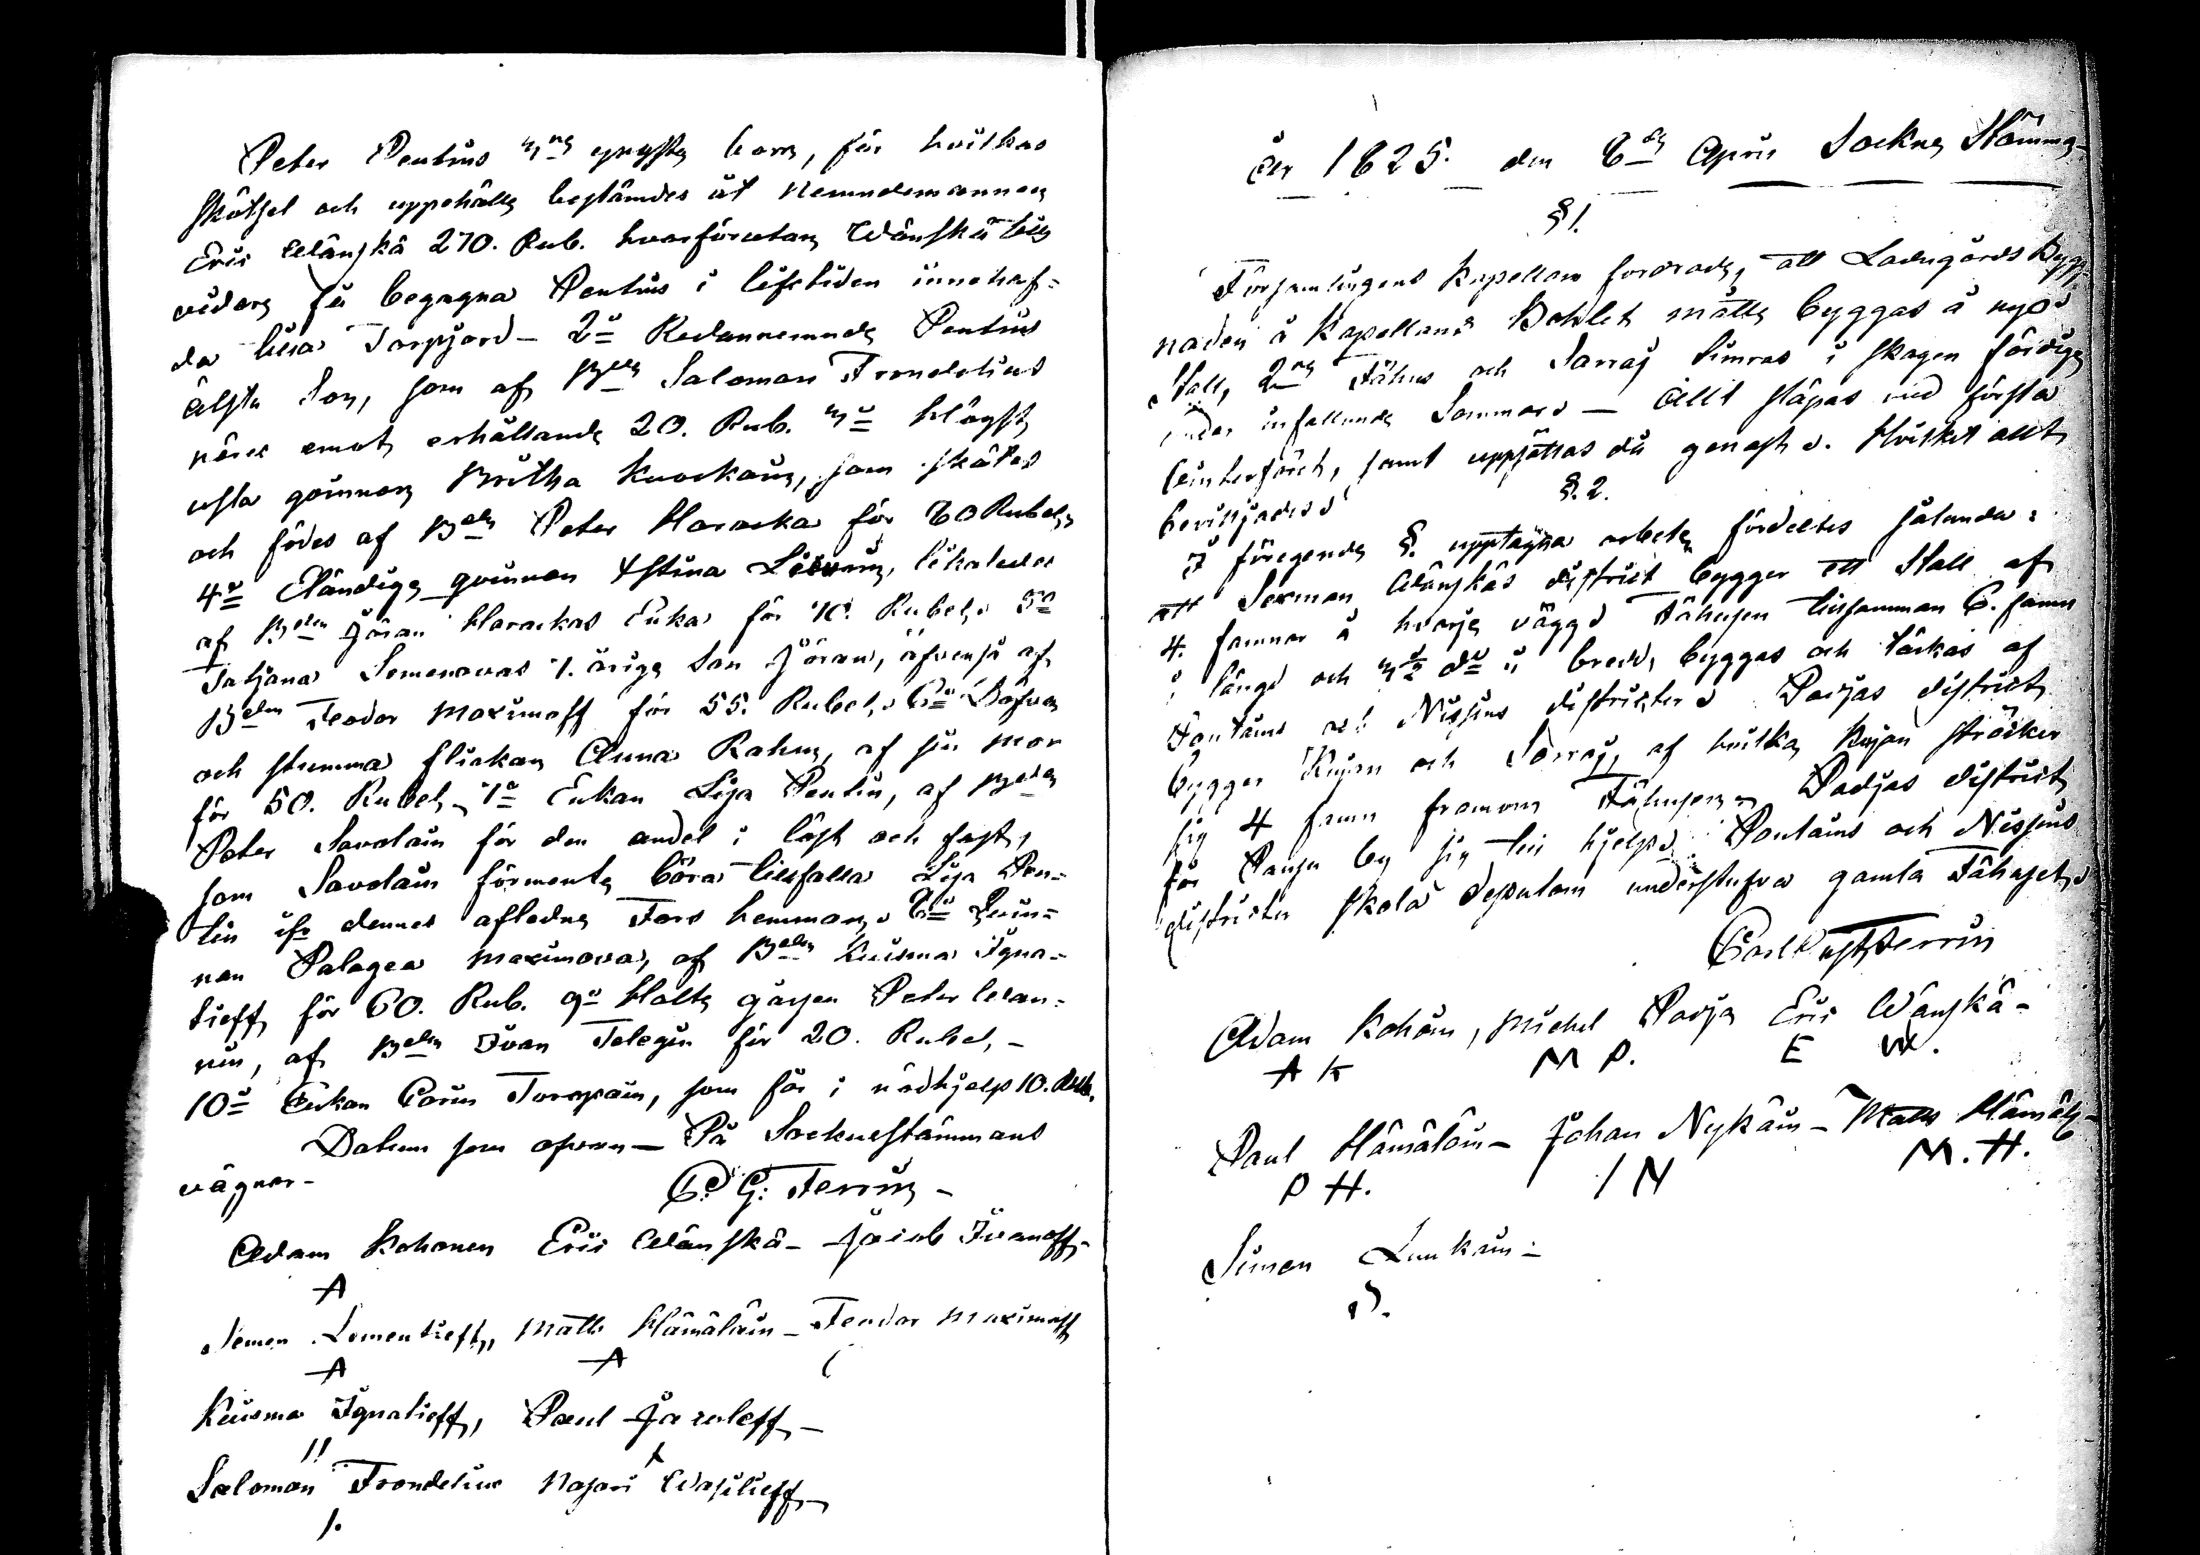 Peter Pentins 3ne yngsta barn, för hvilkas
skötsel och uppehälle bestämdes åt Nemndemannen
Eric Wänskä 270. Rub. hvarförutan Wänskä till
vidare få begagna Pentins i lifstiden innehaf-
da lilla Torpjord - 2o Redannemnde Pentins
älsta Son, som af Bden Salomon Frondelius
emot erhållande 20. Rub. 3o
usla qvinnan Britha Kuockain, som skötes
och födes af Bden Peter Haracka för 80 Rubel,
4o Eländiga qvinnan Stina likaledes
af Bden Jöran Harackas Enka för Rubel. 5o
Tatjana Semenovas 7. åriga Son Jöran, äfvenså af
Bden Feodor Maximoff för 55. Rubel, 6o Döfva
och stumma flickan Anna Rahm, af sin Mor
för 50. Rubel, 7o Enkan Lisa Pentin, af Bden
Peter Savolain för den andel i löst och fast,
som Savolain förmente böra tillfalla Lisa Pen-
tin ifr dennes afledne Fars hemman, 8o Qvin-
nan Palagea Maximova, af Bden Kusma Igna-
tieff för 60. Rub. 9o Halta gossen Peter Ivan-
nin, af Bden Ivan Telegin för 20. Rubel, -
10o Enkan Carin Turupain, som får i nödhjelp 10. Rub.
Datum som ofvan - På Sockenstämmans
vägnar -
C. G: Ferrin -
Adam Kohonen Eric Wänskä - Jacob Ivanoff -
A
Semen Lementieff, Matts Hämäläin - Feodor Maximoff
A A (
Kusma Ignatieff, Paul Jacovleff -
11 x
Salomon Frondelius Nasari Wasilieff -
1.
År 1825. den 8de April Sockne Stämma
§ 1.
Församlingens Kapellan fordrade, att Ladugårds Bygg-
naden å Kapellans Bohlet måtte byggas å nyo
Stall, 2ne Fähus och Sarraj timras i skogen färdige
under infallande Sommar - Allt släpas vid första
vinterföret, samt uppsättas då genast. Hvilket allt
beviljades
§. 2.
I föregende §. upptagna arbeten fördeltes sålunda:
att Sexman Wänskäs district bygger ett Stall af
4. famnar å hvarje vägg. Fähusen tillsamman 6. famn
i längd och 3½ do i bredd, byggas och täckas af
Pontains och Nissins districter. Parjas district
bygger Rujan och Sarraj, af hvilka Rujan sträcker
sig 4 famn framom Fähusen. Parjas district
får by sig till hjelp. Pontains och Nissins
districter skola dessutom understufva gamla Fähuset.
Carl Gust Ferrin
Adam Kohoin, Michel Parja Eric Wänskä -
A K M P. E W.
Paul Hämäläin - Johan Nykäin - Matts Hämäläi-
P H. I N M. H.
Simon Lunkain -
S.